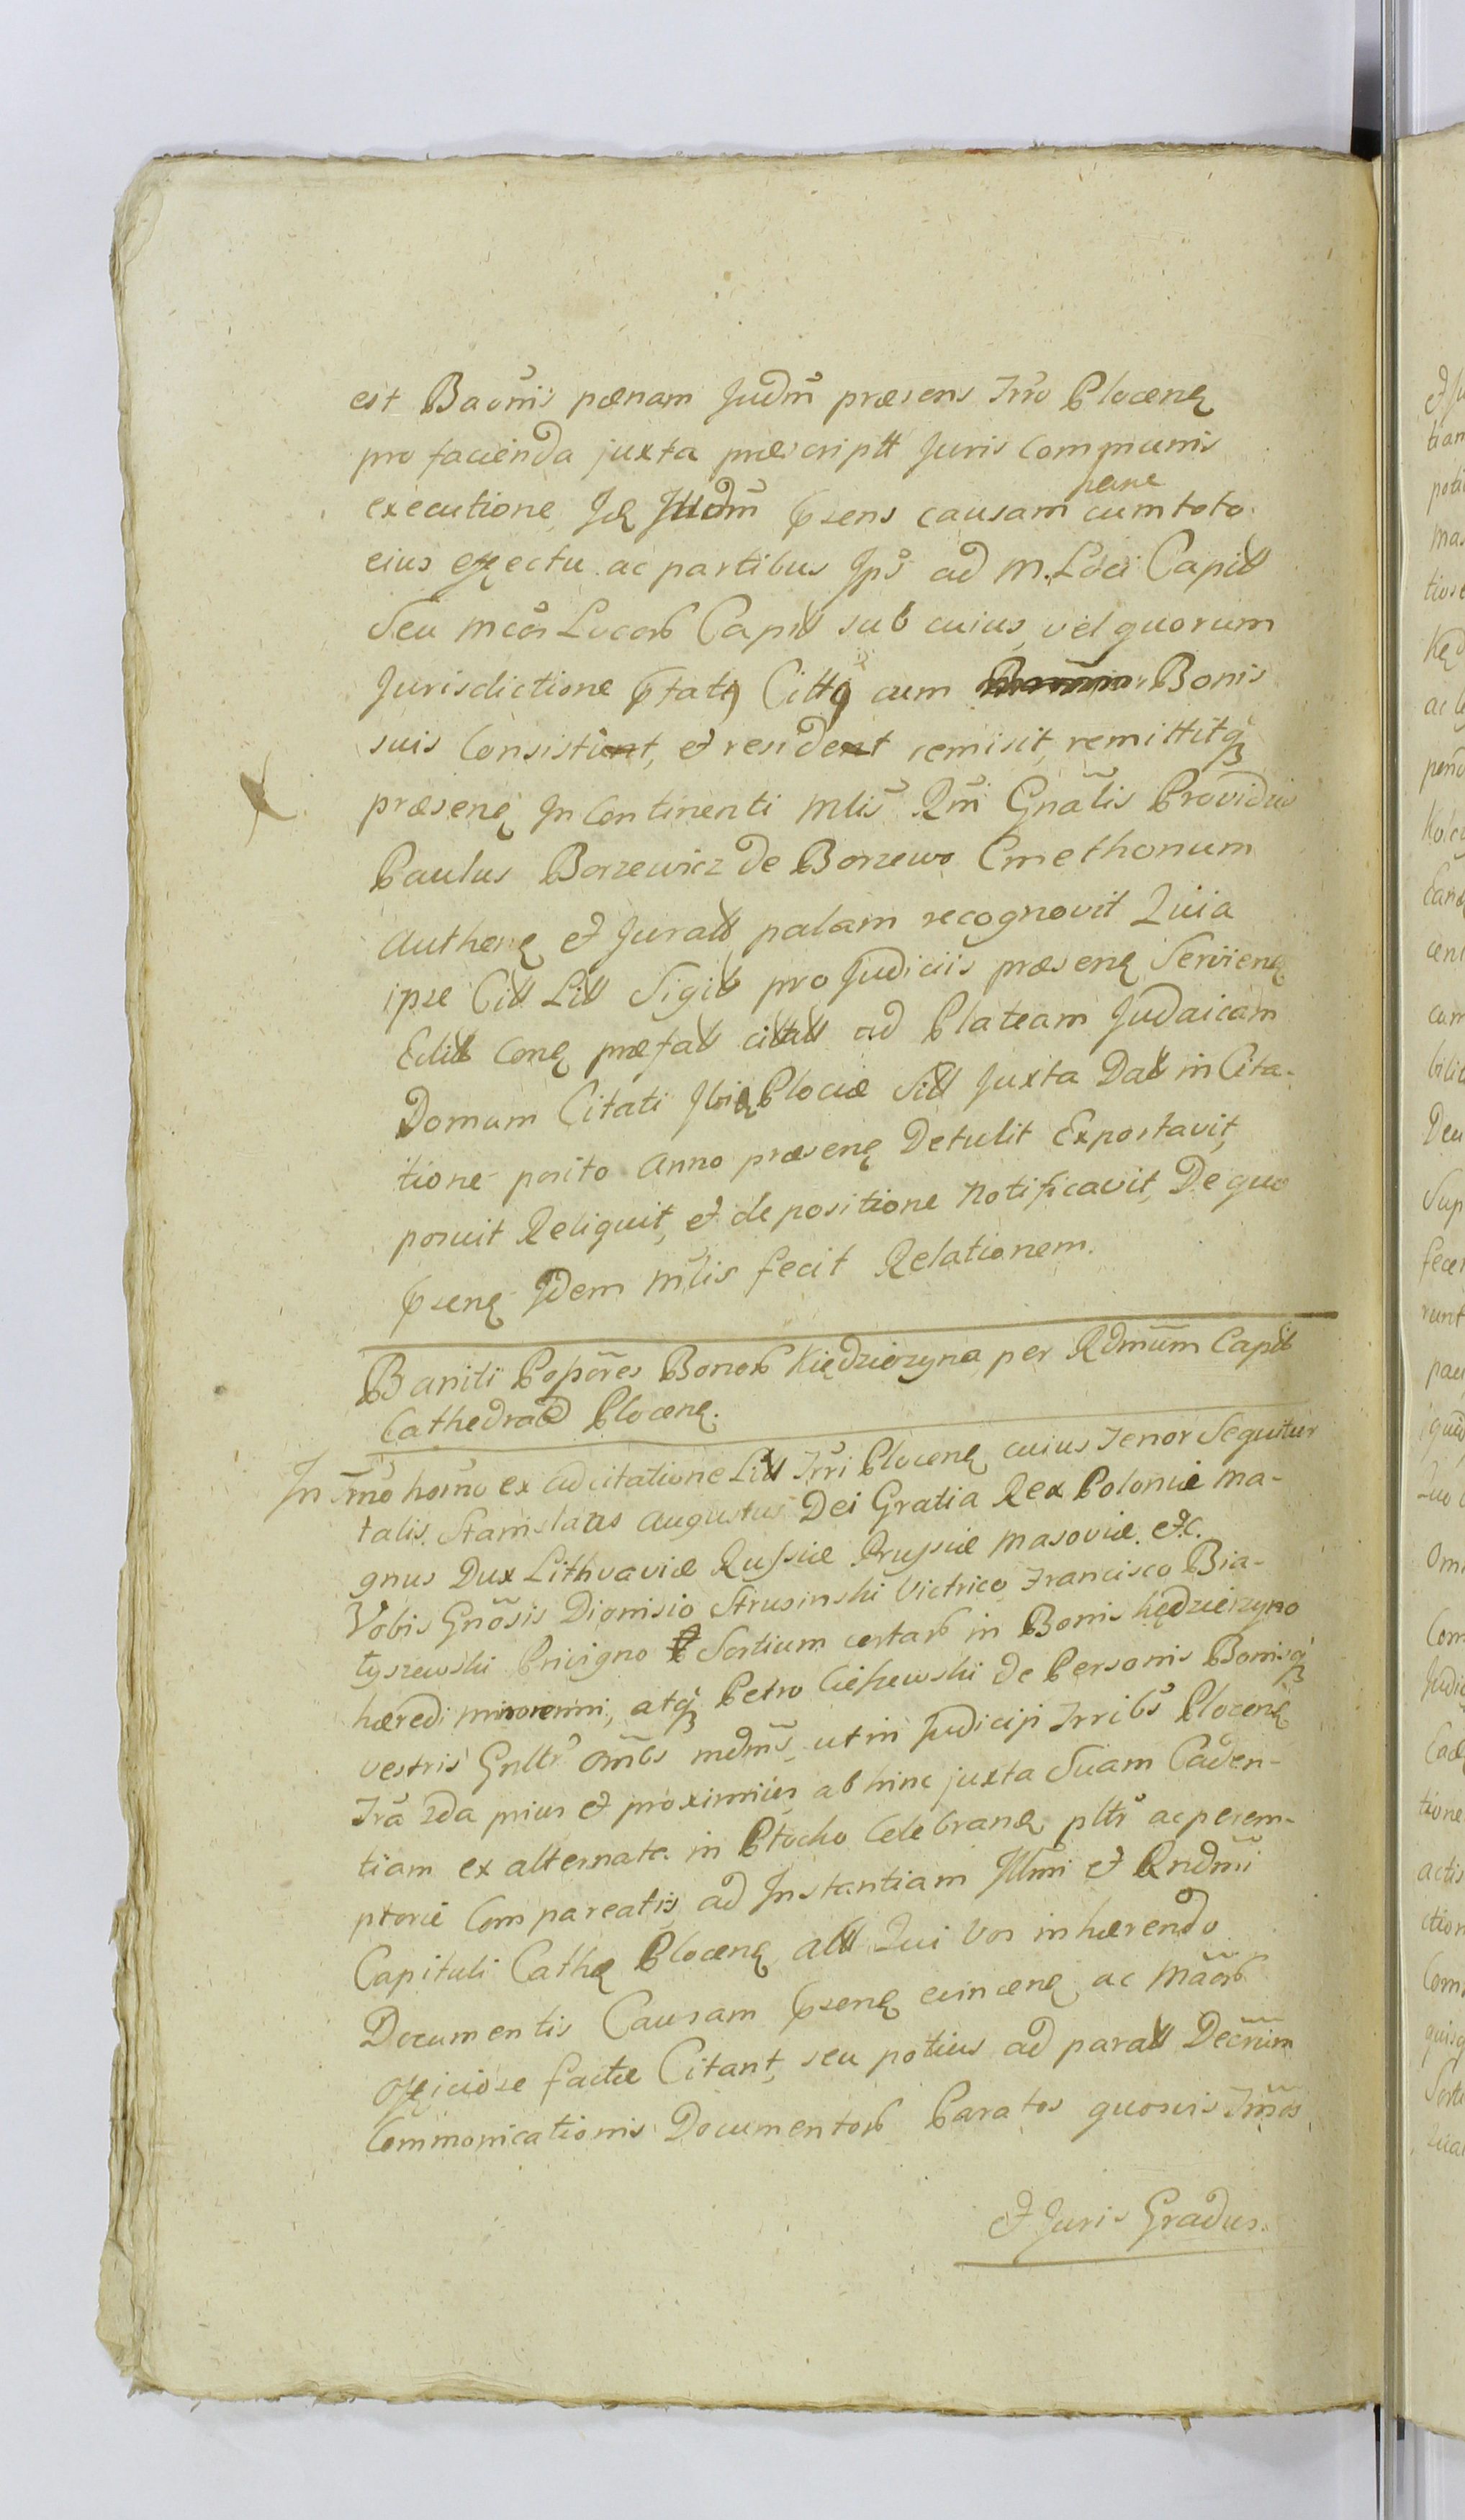 est Baõnis pœnam Judm̃ præsens Trro Plocenę
pro facienda juxta præscriptt Juris communis
executione, Jdę Judm̃ Pzens causam hanc cum toto
eius effectu ac partibus Jps ad M. Loci Capitt
Seu mcos Locorb Capitt sub cuius, vel quorum
Jurisdictione Pfatq Cittq cum Bonis
suis Consistit, et residet remisit, remittitq
præsenę In Continenti Mlis Rm̃i Gnãlis Providus
Paulus Borzewicz de Borzewo Cmethonum
Authenę et Juratt palam recognovit Quia
ipse Citt Litt Sigitt pro Judiciis præsenę Servienę
Editt Conę præfatt cittatt ad Plateam Judaicam
Domum Citati Ibię Plociæ Sitt Juxta Datt in Cita-
tione posito Anno præsenę Detulit Exportavit,
posuit Reliquit, et de positione Notificavit, De quo
Pzenę Jdem Mlis fecit Relationem.
Baniti Possores Bonorb Kiędzierzyna per Rdmum Capitt
Cathedrad Plocenę.
In Tmo horno ex adcitatione Litt Trri Plocenę cuius Tenor Sequitur
talis. Stanislaus Augustus Dei Gratia Rex Poloniæ Ma-
gnus Dux Lithvaviæ Russiæ Prussiæ Masoviæ. etc.
Vobis Gnosis Dionisio Strusinski Victrico, Francisco Bia-
łyszewski Privigno Sortium certarb in Bonis Kędzierzyno
hæredi minorenni, atq Petro Ciessewski de Personis Bonisq
vestris Gnltr om̃bs mdm̃s, ut in Judiciji Trribs Plocenę
Tra 2da prius et proximius, ab hinc juxta Suam Caden-
tiam ex alternata in Płocko Celebranę pltr ac perem-
ptorie Compareatis, ad Instantiam Jllmi et Rndmi
Capituli Cathę Plocenę att Qui Vos inhærendo
Documentis Causam Pzenę evincenę, ac Maorb
officiose factæ Citant, seu potius ad paratt Decrum
Commonicationis Documentorb Paratos quosvis Tmos
et Juris Gradus.